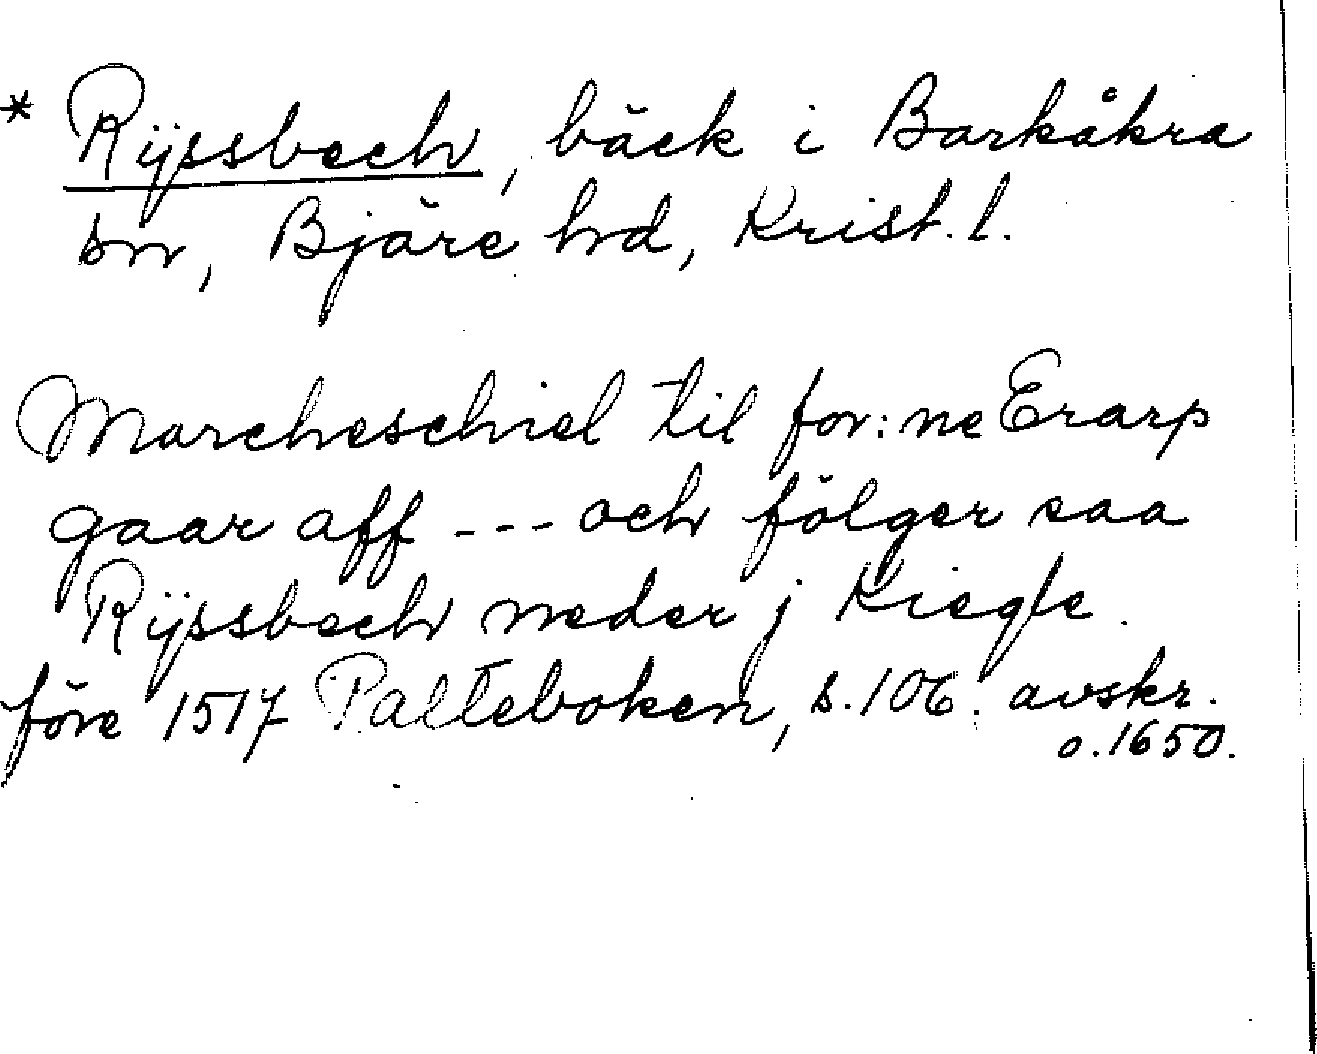 * Rÿssbech, bäck i Barkåkra
sn, Bjäre hd, Krist. l.
Marcheschiel til for:ne Erarp
gaar aff --- och fölger saa
Rÿssbech neder j Kiegle.
före 1517 Palteboken, s. 106. avskr.
o. 1650.